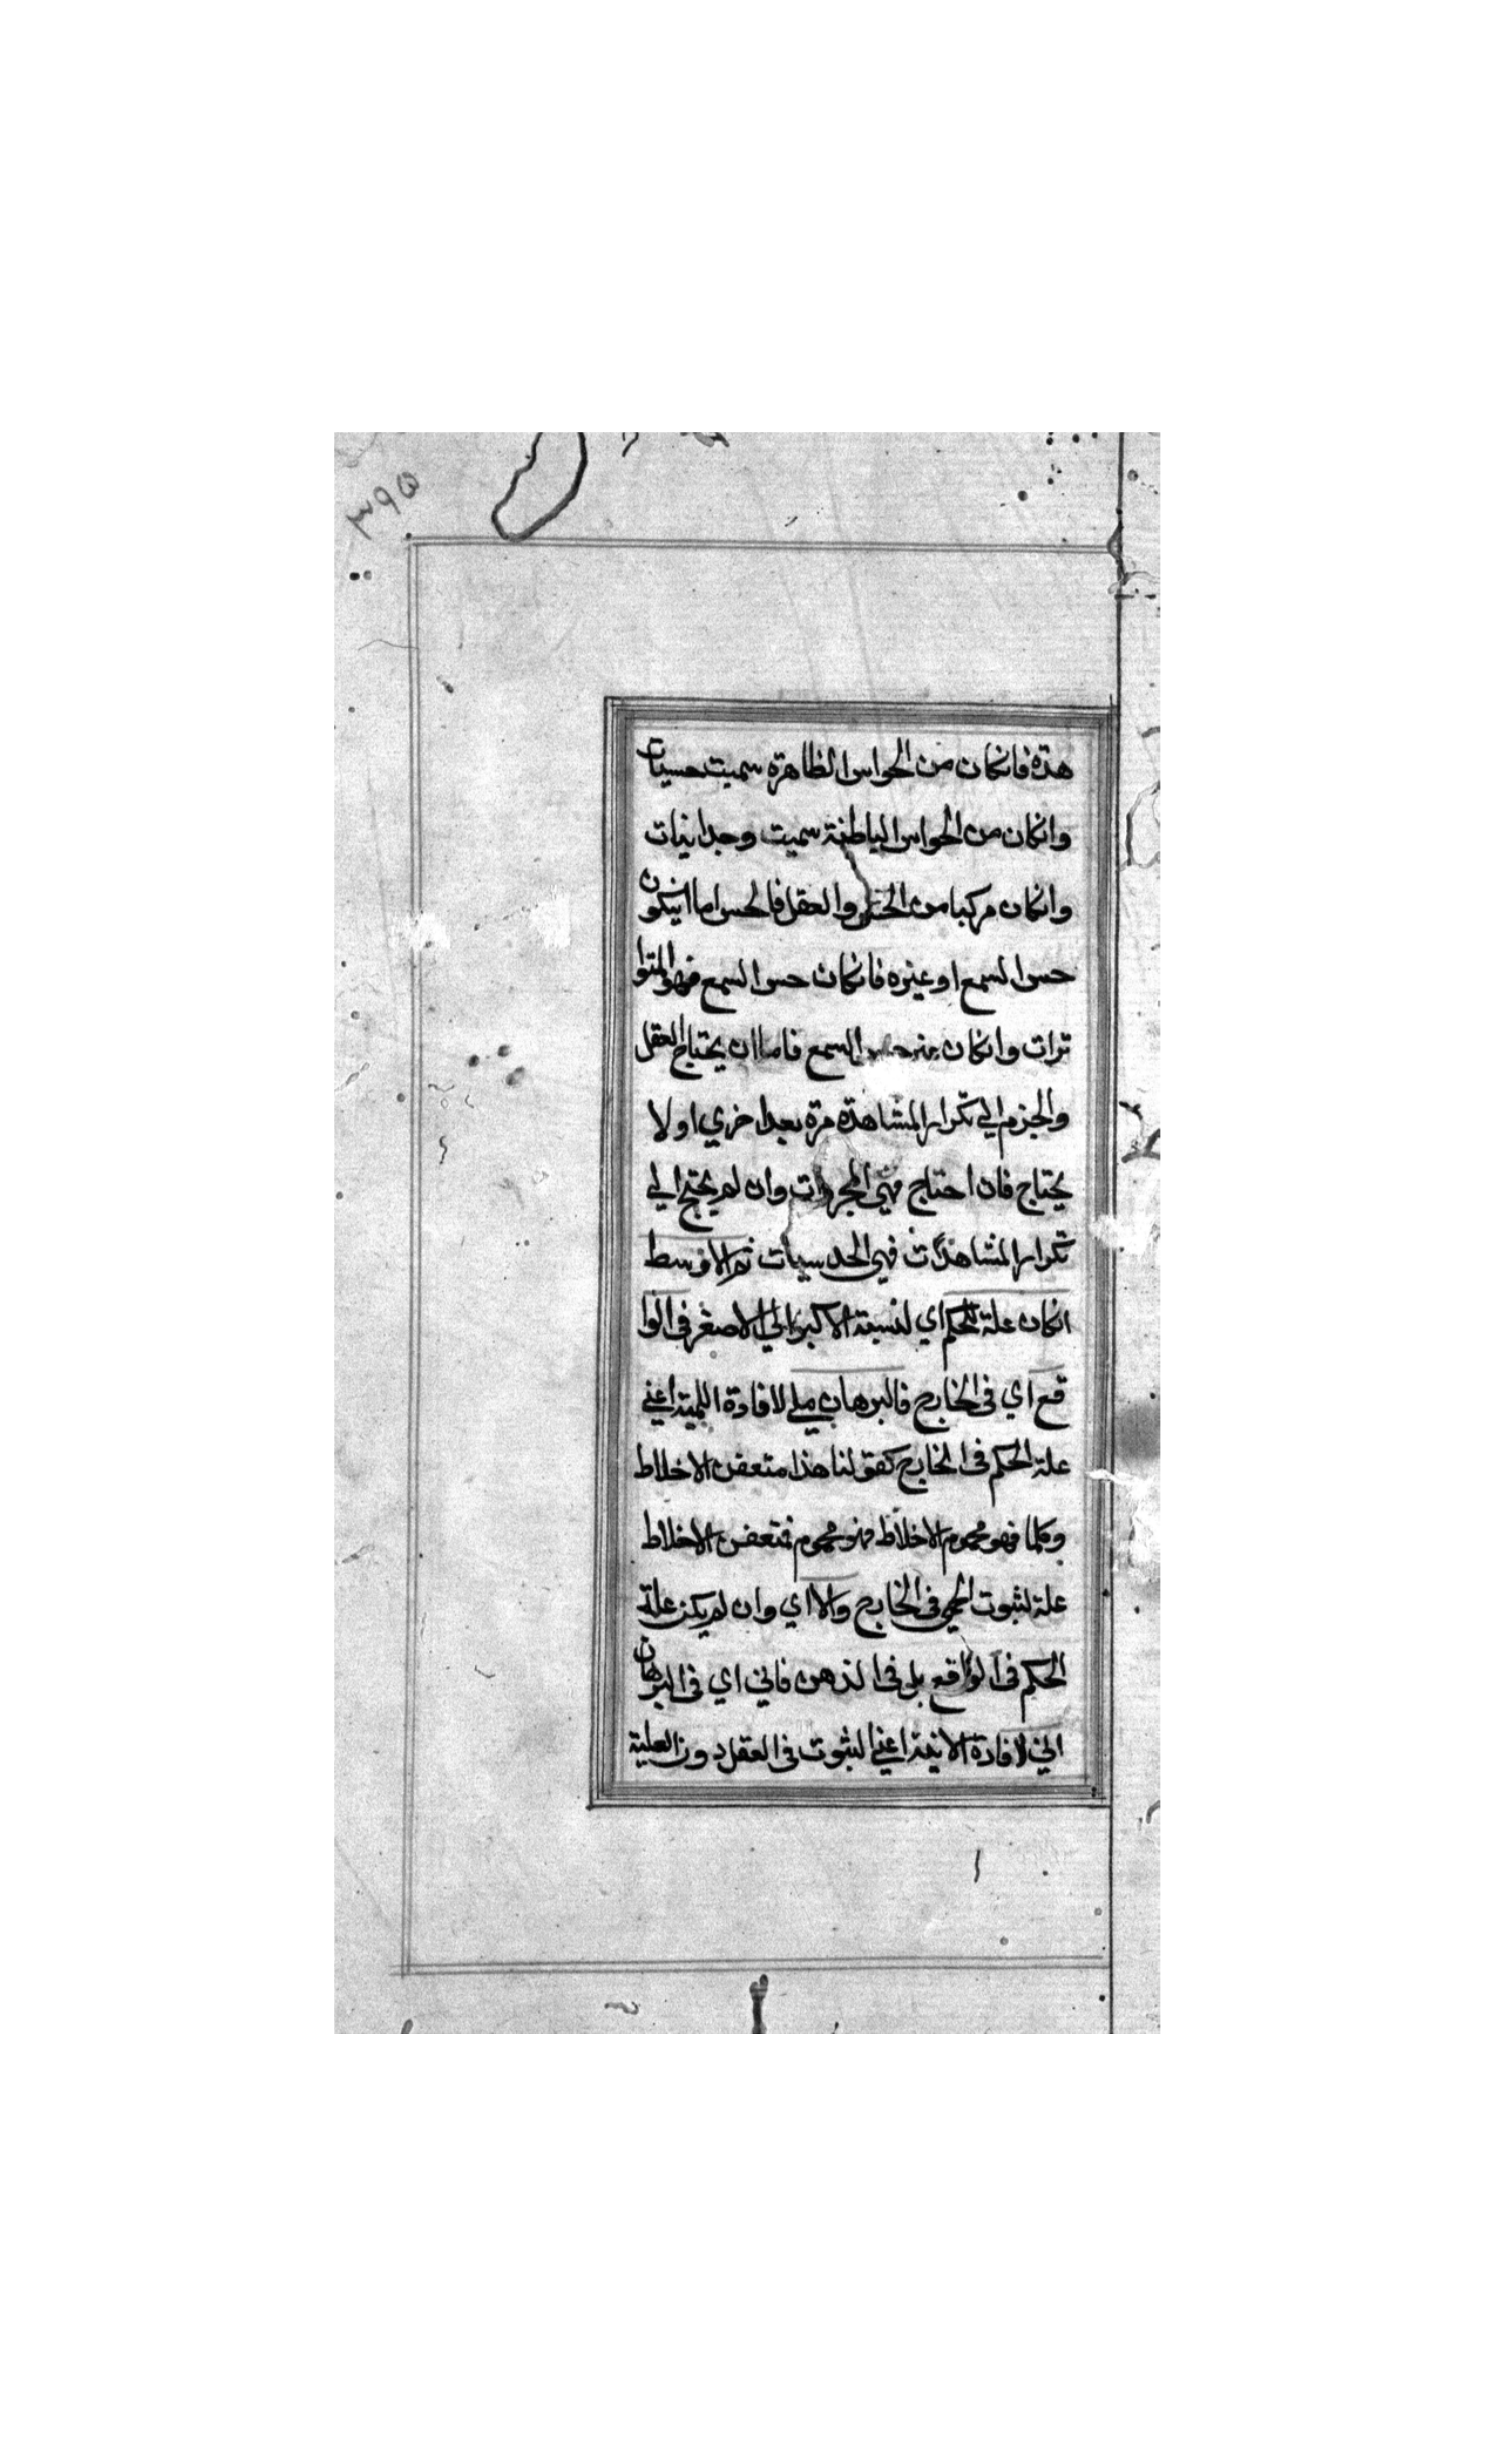 ٣٩٥
هدة فانكان من الحواس الظاهرة سميت حسيات
وانكان من الحواس الباطنة سميت وجدانيات
وانكان مركبا من الحس والعقل فالحس اما انيكون
حس السمع او غيره فانكان حس السمع فهو المتوا
ترات وانكان غير حس السمع فاما ان يحتاج العقل
والجزم الي تكرار المشاهدة مرة بعد اخري اولا
يحتاج فان احتاج فهي المجربات وان لم يحتج الي
تكرار المشاهدات فهي الحدسيات ثم الاوسط
انكان علة للحكم اي لنسبة الاكبر الي الاصغر في الوا
قع اي في الخارج فالبرهان لمي لافادة اللمية اعني
علة الحكم في الخارج كقولنا هذا متعفن الاخلاط
وكلما فهو محموم الاخلاط فهو محموم فتعفن الاخلاط
علة لثبوت الحمي في الخارج والا اي وان لم يكن علة
الحكم في الواقع بل في الذهن فاني اي في البرهان
اني لافادة الانية اعني الثبوت في العقل دون العلية